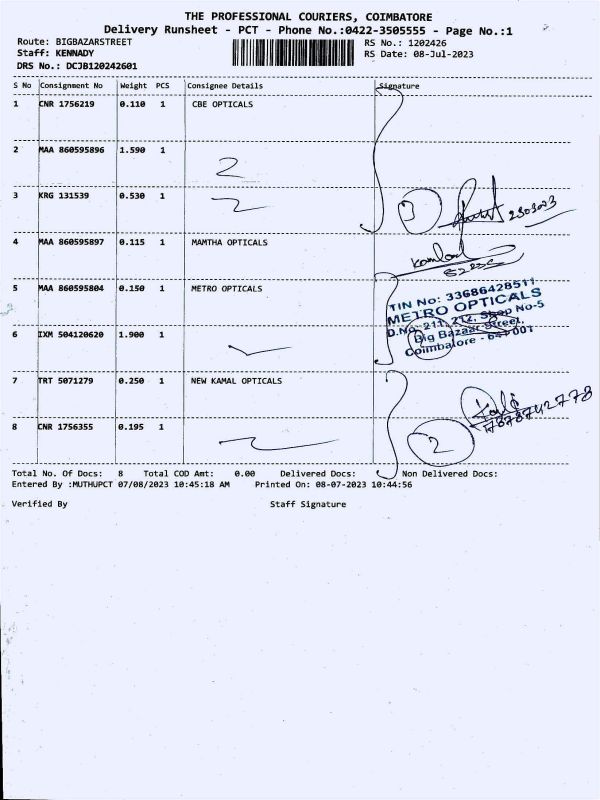 THE PROFESSIONAL COURIERS, COIMBATORE
Delivery Runsheet - PCT - Phone No.:0422-3505555 - Page No.:1
Route: BIGBAZARSTREET RS No.: 1202426
Staff: KENNADY RS Date: 08-Jul-2023
DRS No.: DCJB120242601
S No Consignment No Weight PCS Consignee Details Signature
1 CNR 1756219 0.110 1 CBE OPTICALS
2 MAA 860595896 1.590 1
2
3 KRG 131539 0.530 1
3
4 MAA 860595897 0.115 1 MAMTHA OPTICALS
5 MAA 860595804 0.150 1 METRO OPTICALS
TIN No: 33686428511
METRO OPTICALS
D.No: 211, 212, Shop No-5
Big Bazaar Street,
Coimbatore - 641 001
6 IXM 504120620 1.900 1
7 TRT 5071279 0.250 1 NEW KAMAL OPTICALS
8 CNR 1756355 0.195 1
2
Total No. Of Docs: 8 Total COD Amt: 0.00 Delivered Docs: Non Delivered Docs:
Entered By :MUTHUPCT 07/08/2023 10:45:18 AM Printed On: 08-07-2023 10:44:56
Verified By Staff Signature